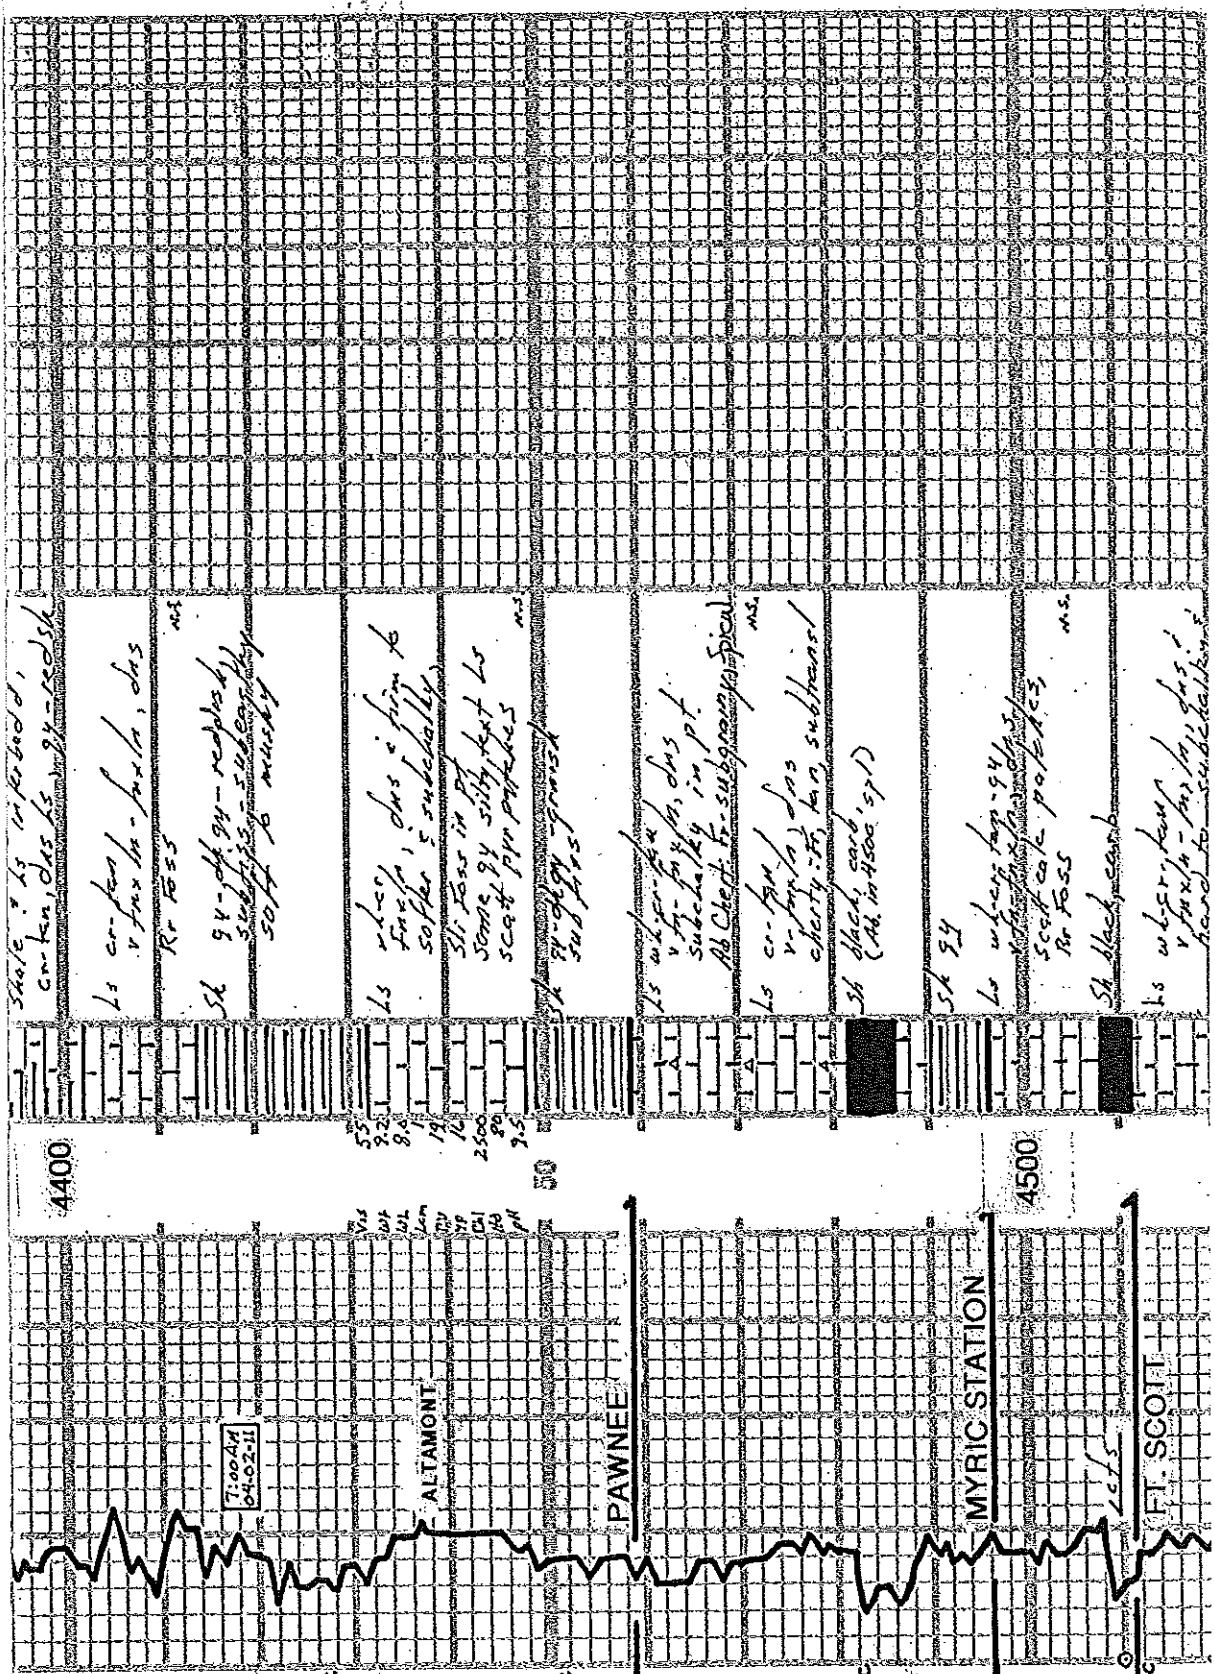 Shale & Ls interbedd,
crm-tan, dns Ls, gy-red sh
Ls cr-tan
v fnxln-fnxln, dns
Rr Foss
N.S.
Sh gy-dk gy-redbrsh,
subfiss-subearthy
soft to mushy
Ls wh-cr
fnxln, dns & firm to
softer & subchalky,
Sli Foss in pt
Some gy silty text Ls
scatt pyr patches
N.S.
Sh gy-dk gy-grnish
subfiss
Ls wh-cr-tan
v fn-fnxln, dns
subchalky in pt
Ab Chert tr-subgrainy, Spical
Ls cr-tan
N.S.
v-fnxln, dns
cherty-tr, tan, subtransl
Sh black, carb,
(Ab. in 4500 spl)
Sh gy
Ls wh-crm tan-gy
v fnxln, dns
Scatt calc patches,
Rr Foss
N.S.
Sh black, carb
Ls wh-cr, tan
v fnxln-fnxln, dns &
hard to subchalky
4400
50
4500
Vis 55
Wt 9.2
WL 8.0
Lcm 1
PV 19
YP 16
Chl 2500
Hd 80
pH 9.5
7:00AM
04-02-11
ALTAMONT
PAWNEE
MYRIC STATION
FT. SCOTT